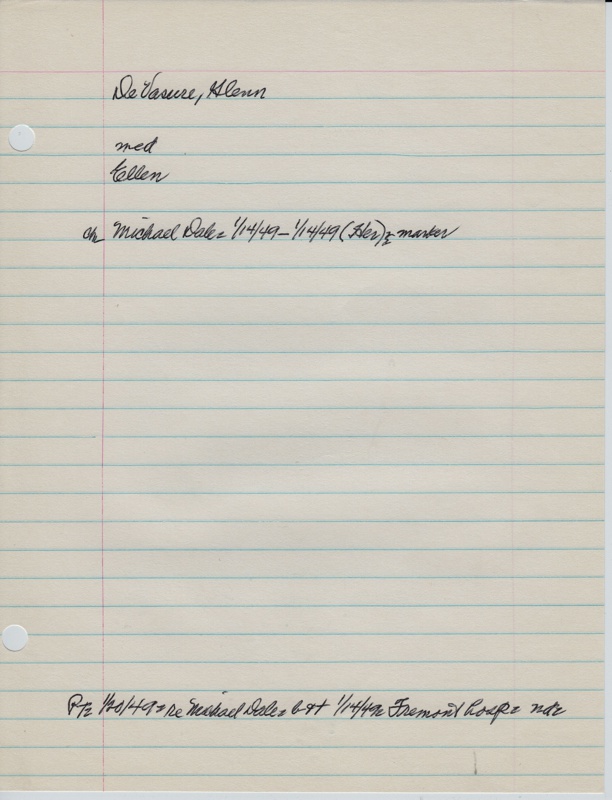 DeVasure, Glenn
med
Ellen
ch= Michael Dale= 1/14/49-1/14/49 (Her)= marker
PT= 1/20/49= re Michael Dale= b+d 1/14/49= Fremont hosp=